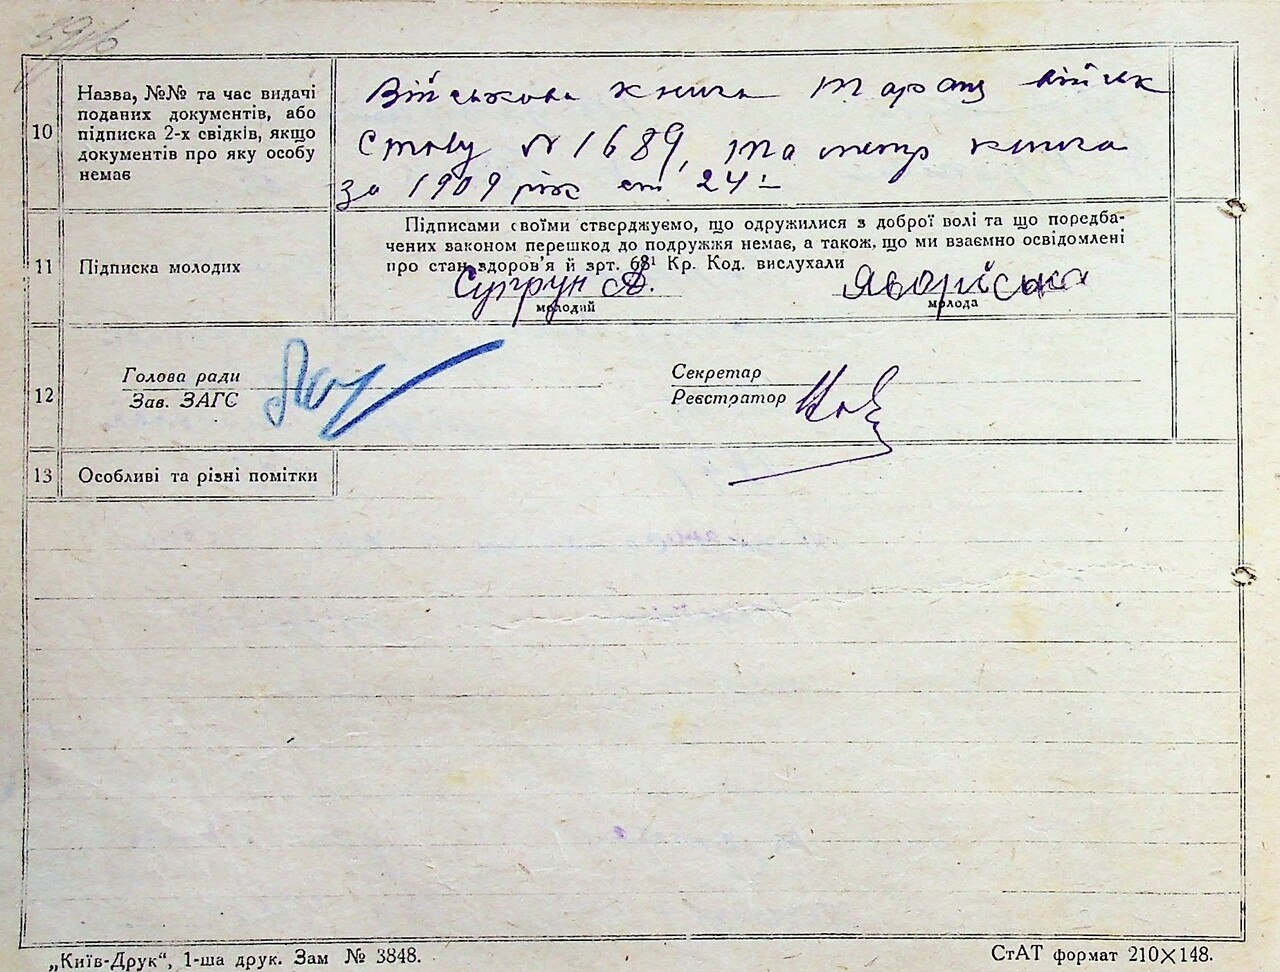 10
Назва, №№ та час видачі
поданих документів, або
підписка 2-х свідків, якщо
документів про яку особу
немає
Військова книга Таращ військ
Столу № 1689, та метр книга
за 1909 рік ст 24
11
Підписка молодих
Підписами своїми стверджуємо, що одружилися з доброї волі та що поредба-
чених законом перешкод до подружжя немає, а також, що ми взаємно освідомлені
про стан здоров'я й зрт. 68¹ Кр. Код. вислухали
Супрун А.
молодий
Яворіська
молода
12
Голова ради
Зав. ЗАГС
Секретар
Реєстратор
13
Особливі та різні помітки
„Київ-Друк“, 1-ша друк. Зам № 3848.
СтАТ формат 210×148.